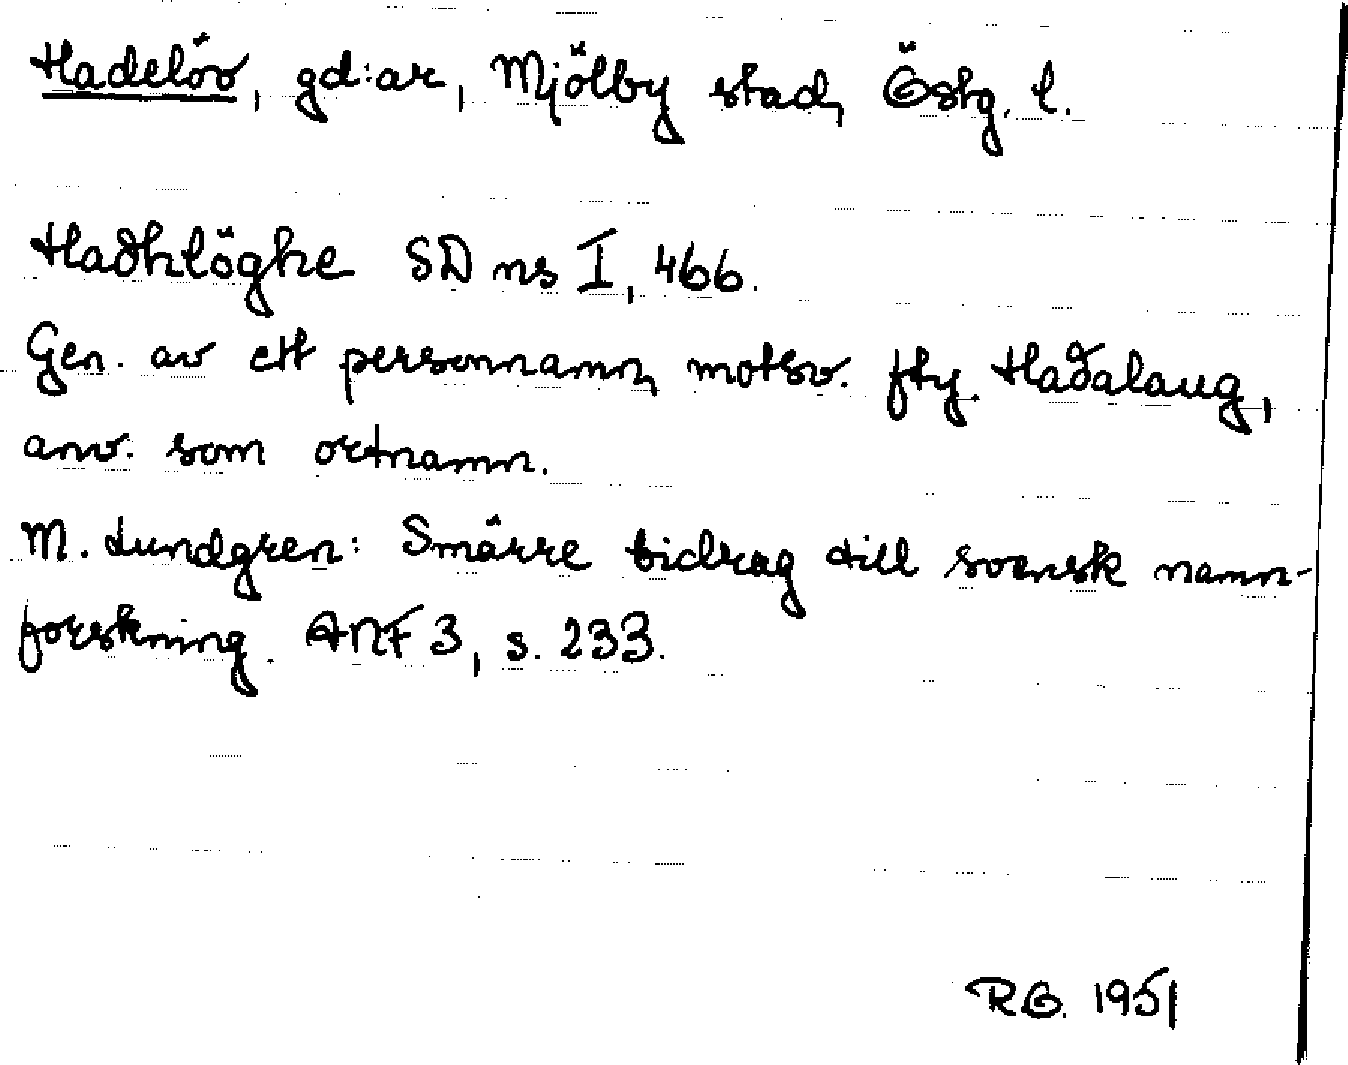 Hadelöv, gd:ar, Mjölby stad, Östg. l.
Hadhlöghe SD ns I, 466.
Gen. av ett personnamn motsv. fty. Haðalaug,
anv. som ortnamn.
M. Lundgren: Smärre bidrag till svensk namn-
forskning. ANF 3, s. 233.
R.G. 1951